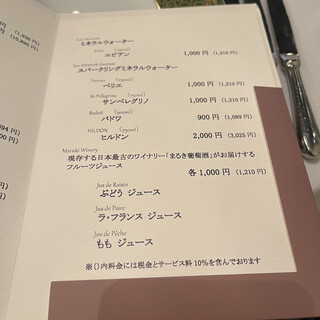 Eau Minérale
ミネラルウォーター
Evian (750ml)
エビアン 1,000 円 (1,210 円)
Eau Minérale Gazeuse
スパークリングミネラルウォーター
Perrier (750ml)
ペリエ 1,000 円 (1,210 円)
St-Pellegrino (750ml)
サンペレグリノ 1,000 円 (1,210 円)
Badoit (750ml)
バドワ 900 円 (1,089 円)
HILDON (750ml)
ヒルドン 2,000 円 (3,025 円)
Maruki Winery
現存する日本最古のワイナリー「まるき葡萄酒」がお届けする
フルーツジュース
各 1,000 円 (1,210 円)
Jus de Raisin
ぶどう ジュース
Jus de Poire
ラ・フランス ジュース
Jus de Pêche
もも ジュース
※( )内料金には税金とサービス料 10%を含んでおります